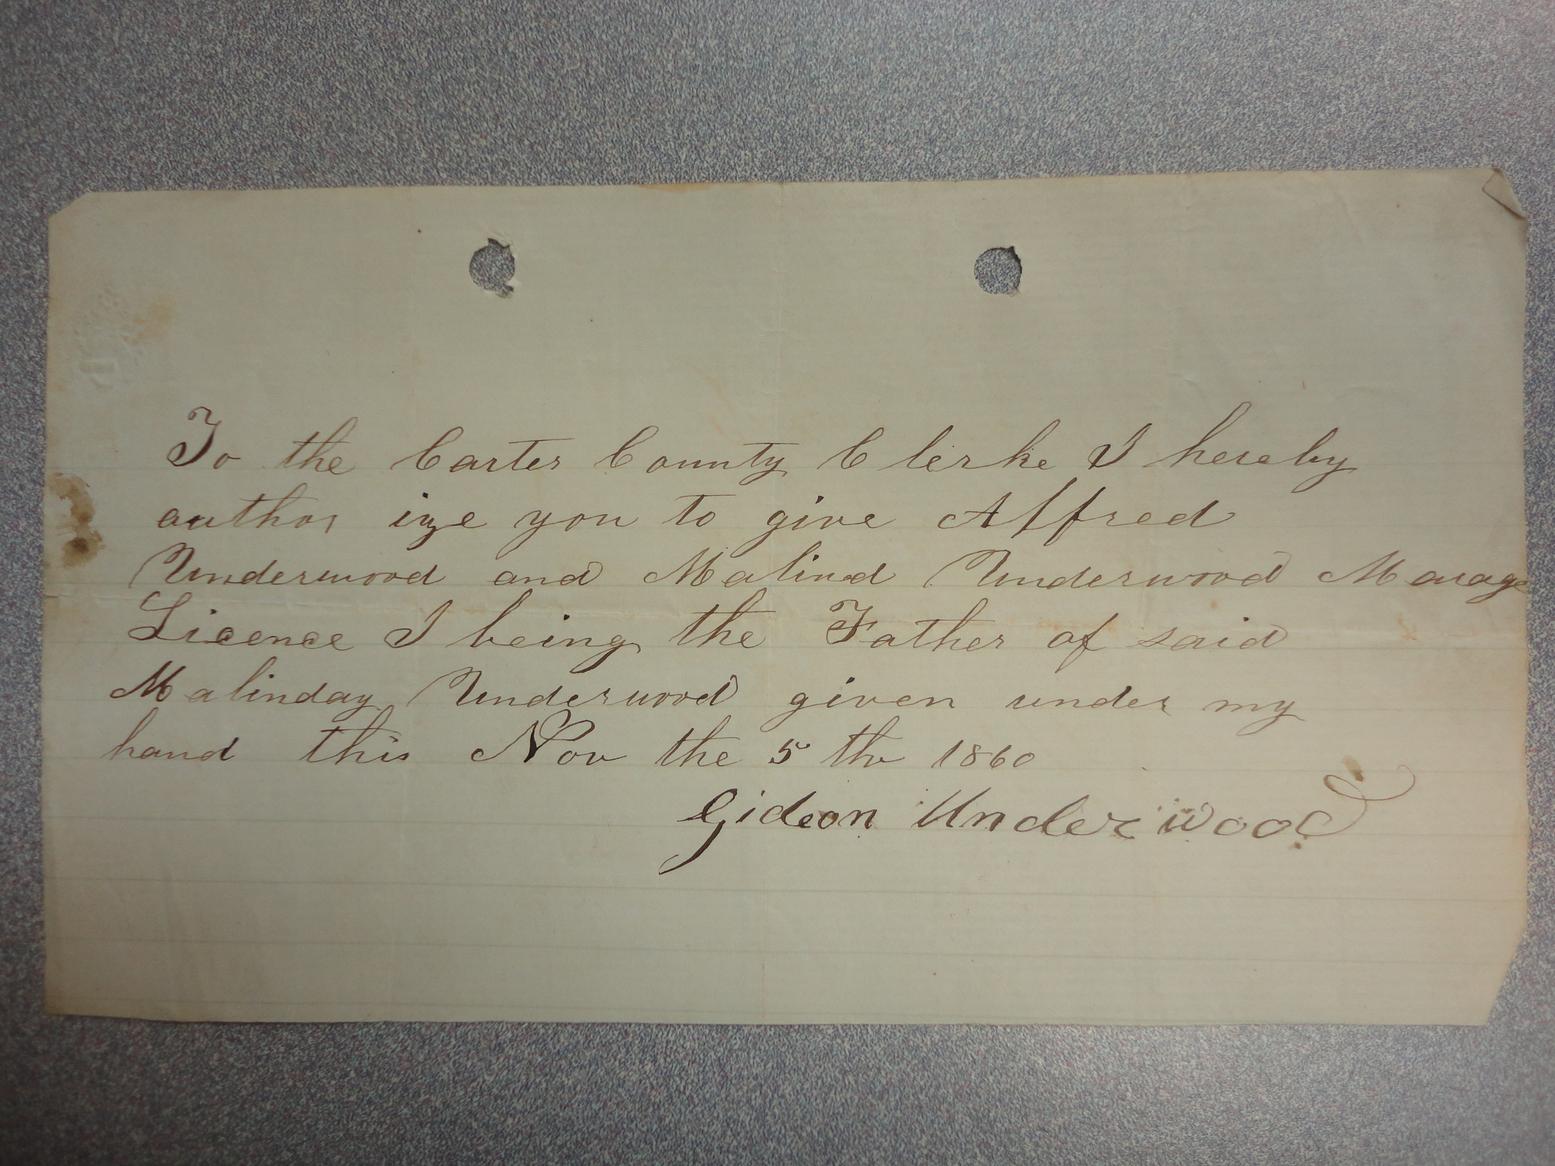 To the Carter County Clerke I hereby
author ize you to give Alffred
Underwood and Malind Underwood Marage
Licence I being the Father of said
Malinday Underwood given under my
hand this Nov the 5 th 1860
Gideon Underwood